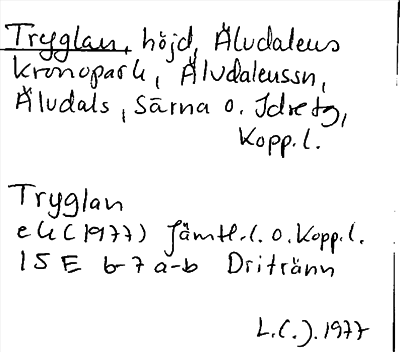 Tryglan, höjd, Äludalens
kronopark, Äludalenssn,
Äludals, Särna o. Idre tg,
Kopp.l.
Tryglan
ek (1977) Jämtl.l. o. Kopp.l.
15 E 6-7 a-b Dritränn
L.C.J. 1977